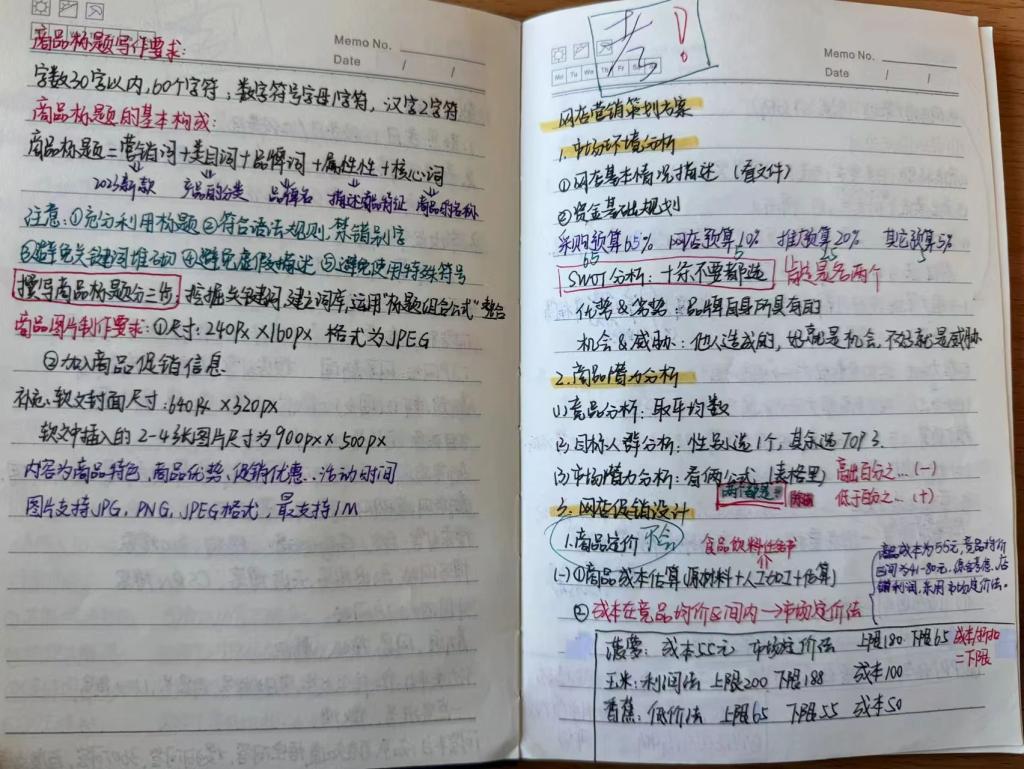 商品标题写作要求:
Memo No.
Date / /
字数30字以内,60个字符;数字符号字母1字符,汉字2字符
商品标题的基本构成:
商品标题=营销词+类目词+品牌词+属性性+核心词
2023新款 产品的分类 品牌名 描述商品特征 商品的名称
注意:①充分利用标题②符合语法规则,禁错别字
③避免关键词堆砌④避免虚假描述⑤避免使用特殊符号
撰写商品标题分三步:挖掘关键词,建立词库,运用"标题组合公式"整合
商品图片制作要求:①尺寸:240px×160px 格式为JPEG
②加入商品促销信息
补充:软文封面尺寸:640px×320px
软文中插入的2-4张图片尺寸为900px×500px
内容为商品特色,商品优势,促销优惠..活动时间
图片支持JPG,PNG,JPEG格式,最支持1M
考!
Memo No.
Mo Tu We Th Fr Sa Su
Date / /
网店营销策划方案
1.市场环境分析
①网店基本情况描述(看文件)
②资金基础规划
采购预算65% 网店预算10% 推广预算20% 其它预算5%
65 5 25 5
SWOT分析:十条不要都选 肯定是各两个
优势&劣势:品牌自身所具有的
机会&威胁:他人造成的,好就是机会,不好就是威胁
2.商品潜力分析
(1)竞品分析:取平均数
(2)目标人群分析:性别选1个,其余选TOP3.
(3)市场潜力分析:看俩公式(表格里) 高出百分之…(-)
低于百分之…(+)
3.网店促销设计
1.商品定价 不会 食品饮料任务书
(一)①商品成本估算(原材料+人工加工+估算)
商品成本为55元,竞品均价
区间为41-80元,综合考虑,店
铺利润,采用市场定价法。
②成本在竞品均价区间内→市场定价法
菠萝:成本55元 市场定价法 上限180 下限65 成本/折扣
=下限
玉米:利润法 上限200 下限188 成本100
香蕉:低价法 上限65 下限55 成本50